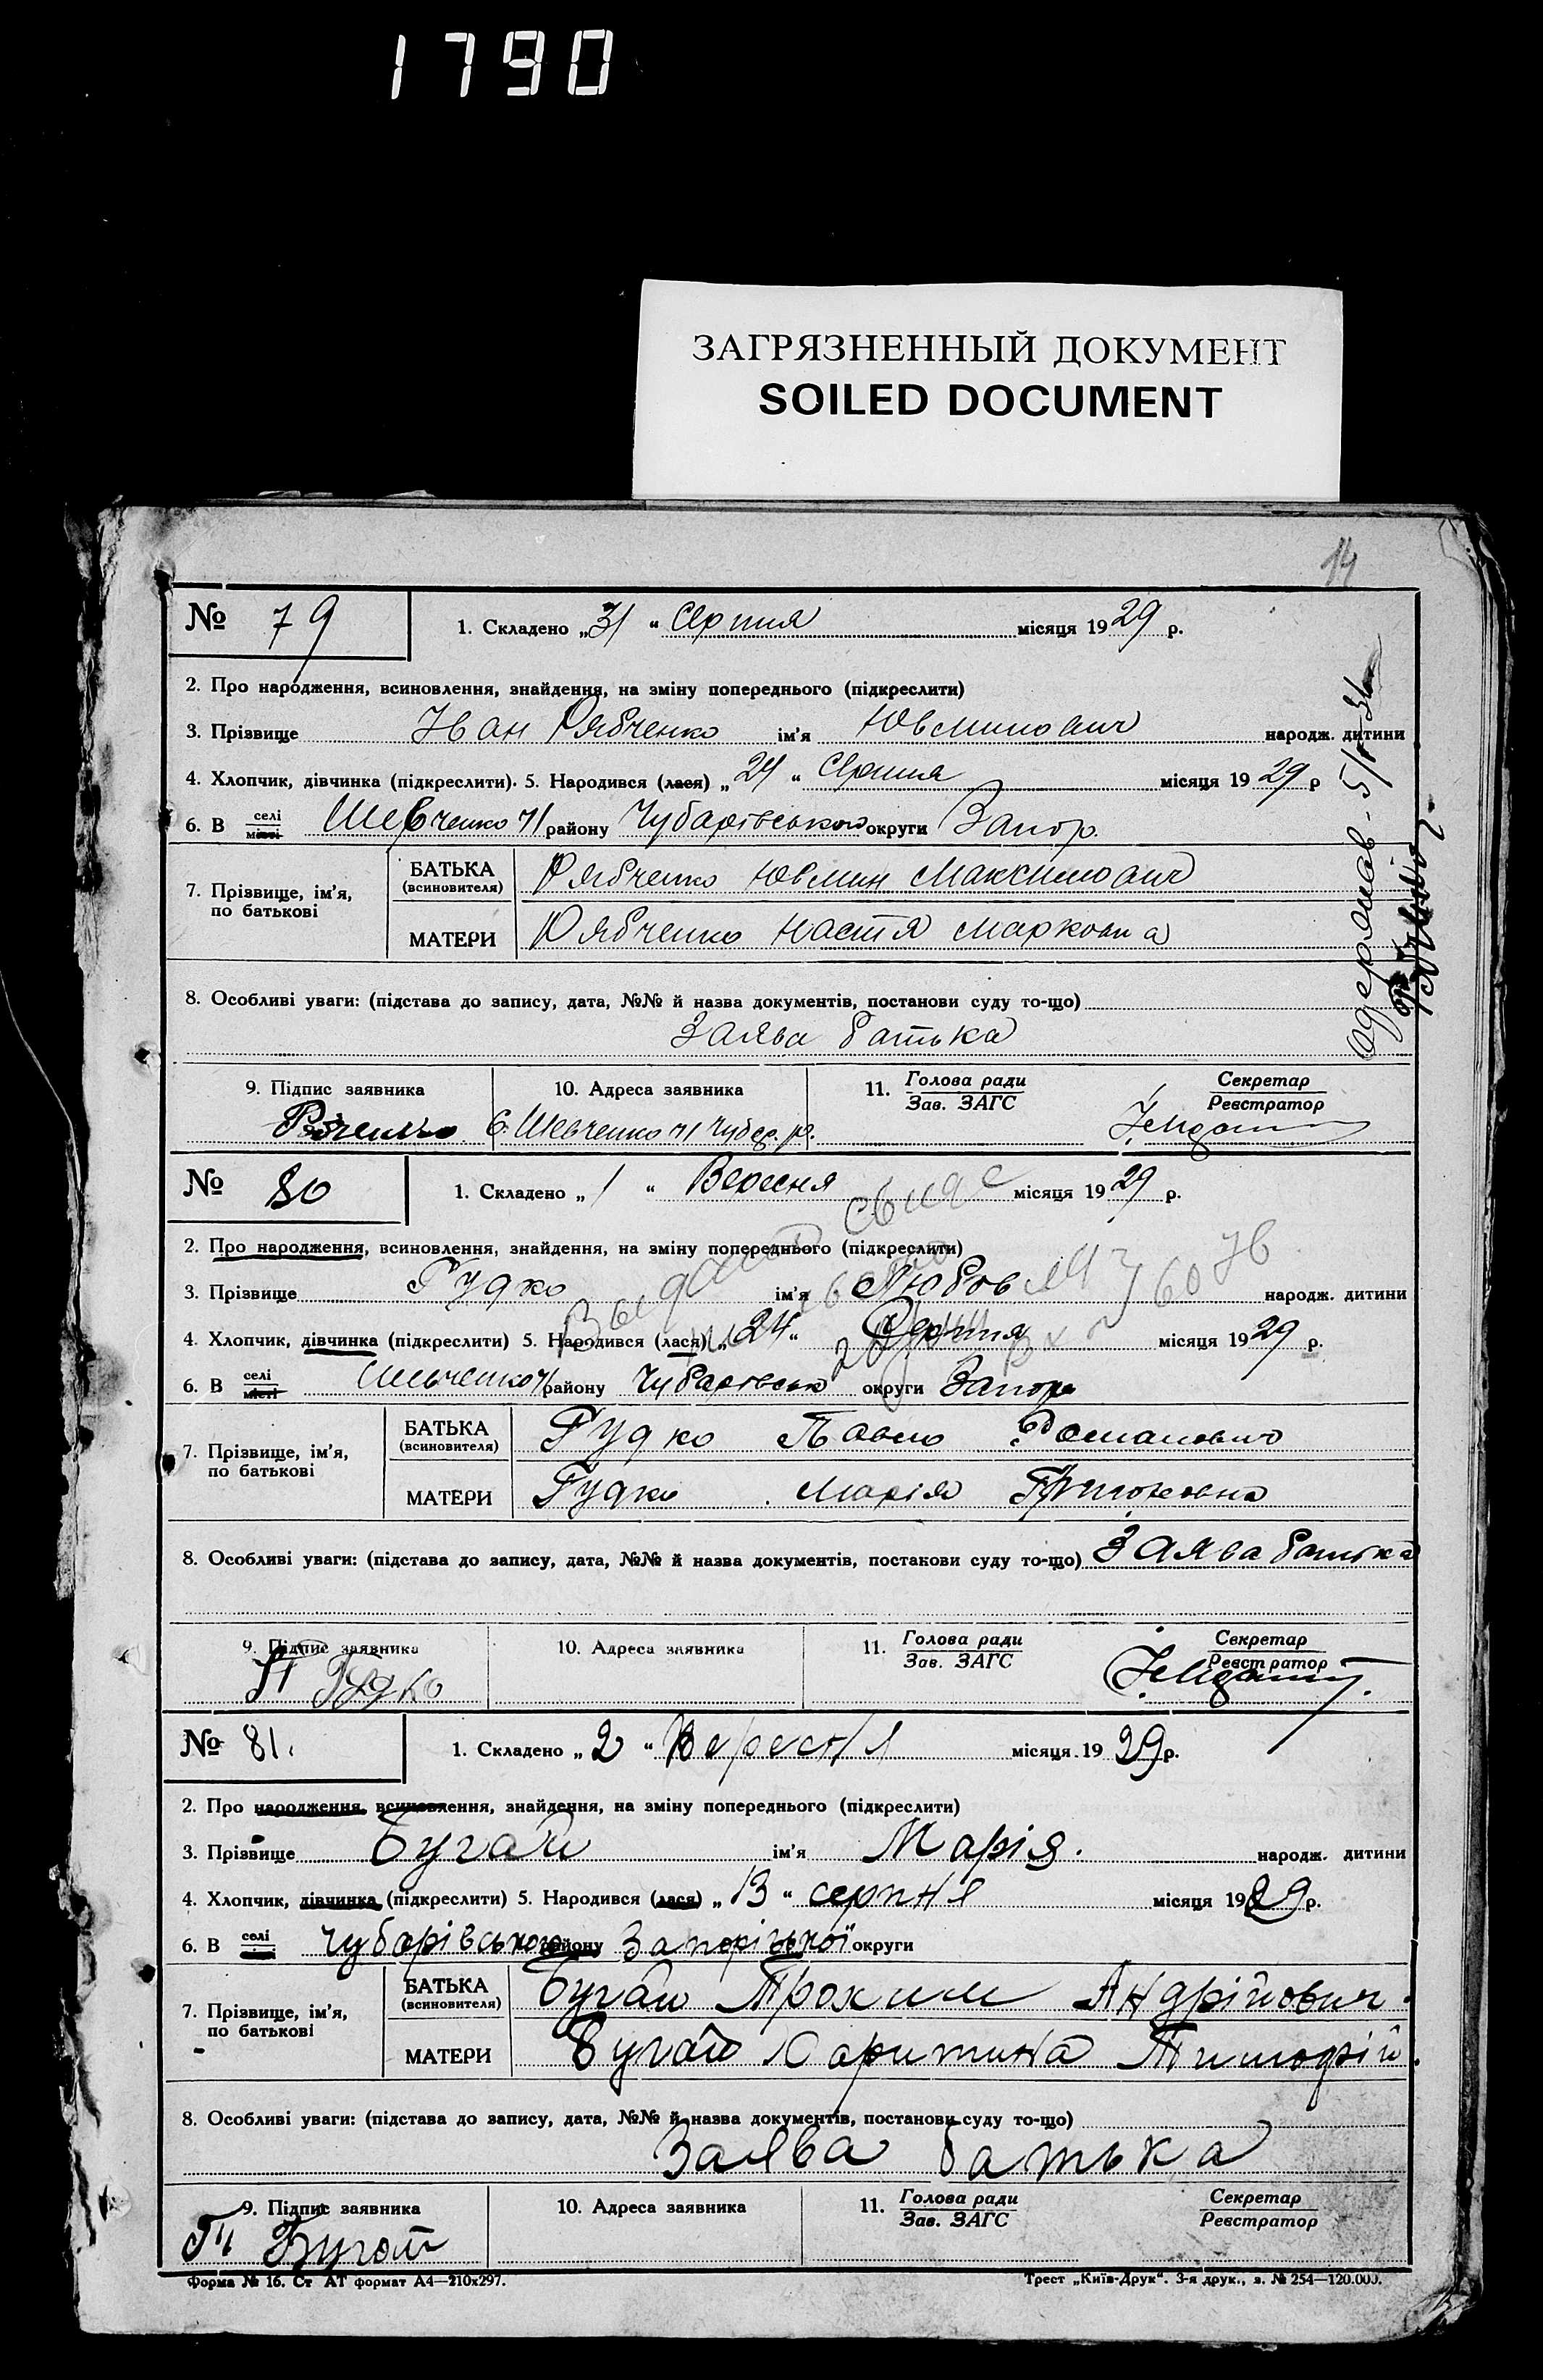 1790
ЗАГРЯЗНЕННЫЙ ДОКУМЕНТ
SOILED DOCUMENT
14
№ 79 1. Складено „31“ Серпня місяця 1929 р.
2. Про народження, всиновлення, знайдення, на зміну попереднього (підкреслити)
3. Прізвище Іван Рябченко ім'я Ювминович народж. дитини
4. Хлопчик, дівчинка (підкреслити). 5. Народився (лася) „24“ Серпня місяця 1929 р
6. В селі місті Шевченко ЧІ району Чубарівського округи Запор.
7. Прізвище, ім'я, по батькові
БАТЬКА (всиновителя) Рябченко Ювмин Максимович
МАТЕРИ Рябченко Настя Марковна
8. Особливі уваги: (підстава до запису, дата, №№ й назва документів, постанови суду то-що)
Заява батька
Одержав - 5/
9. Підпис заявника 10. Адреса заявника 11. Голова ради Зав. ЗАГС Секретар Реєстратор
С. Шевченко ЧІ Чубар. р.
№ 80 1. Складено „1“ Вересня місяця 1929 р.
2. Про народження, всиновлення, знайдення, на зміну попереднього (підкреслити)
3. Прізвище Гудко ім'я Любов народж. дитини
4. Хлопчик, дівчинка (підкреслити) 5. Народився (лася) „24“ Серпня місяця 1929 р.
6. В селі місті Шевченко ЧІ району Чубарівськ округи Запор
7. Прізвище, ім'я, по батькові
БАТЬКА (всиновителя) Гудко Павло Романович
МАТЕРИ Гудко Марія
8. Особливі уваги: (підстава до запису, дата, №№ й назва документів, постанови суду то-що) Заява батька
9. Підпис заявника 10. Адреса заявника 11. Голова ради Зав. ЗАГС Секретар Реєстратор
П Гудко
№ 81. 1. Складено „2“ Вересня місяця 1929 р.
2. Про народження, всиновлення, знайдення, на зміну попереднього (підкреслити)
3. Прізвище Бугай ім'я Марія. народж. дитини
4. Хлопчик, дівчинка (підкреслити) 5. Народився (лася) „13“ серпня місяця 1929 р.
6. В селі Чубарівського району Запорізької округи
7. Прізвище, ім'я, по батькові
БАТЬКА (всиновителя) Бугай Трохим Андрійович.
МАТЕРИ Бугай Харитина Тимофій.
8. Особливі уваги: (підстава до запису, дата, №№ й назва документів, постанови суду то-що)
Заява батька
9. Підпис заявника 10. Адреса заявника 11. Голова ради Зав. ЗАГС Секретар Реєстратор
Бугай
Форма № 16. Ст АТ формат А4—210х297. Трест „Київ-Друк“. 3-я друк., з. № 254—120.000.